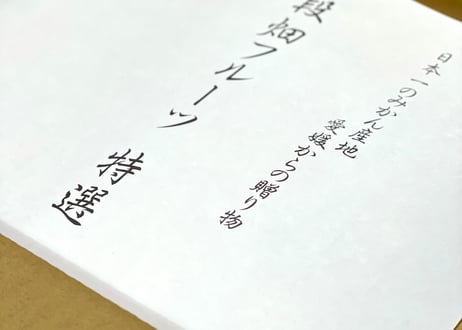 日本一のみかん産地
愛媛からの贈り物
段畑フルーツ
特選